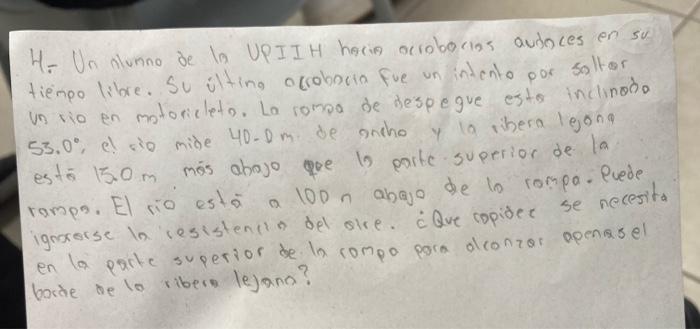 4.- Un alumno de la UPIIH hacia acrobacias audaces en su
tiempo libre. Su última acrobacia fue un intento por saltar
un rio en motocicleta. La rampa de despegue esta inclinada
53.0°, el rio mide 40.0 m de ancho y la ribera lejana
está 15.0 m más abajo que la parte superior de la
rampa. El rio está a 100 m abajo de la rampa. Puede
ignorarse la resistencia del aire. ¿Que rapidez se necesita
en la parte superior de la rampa para alcanzar apenas el
borde de la ribera lejana?